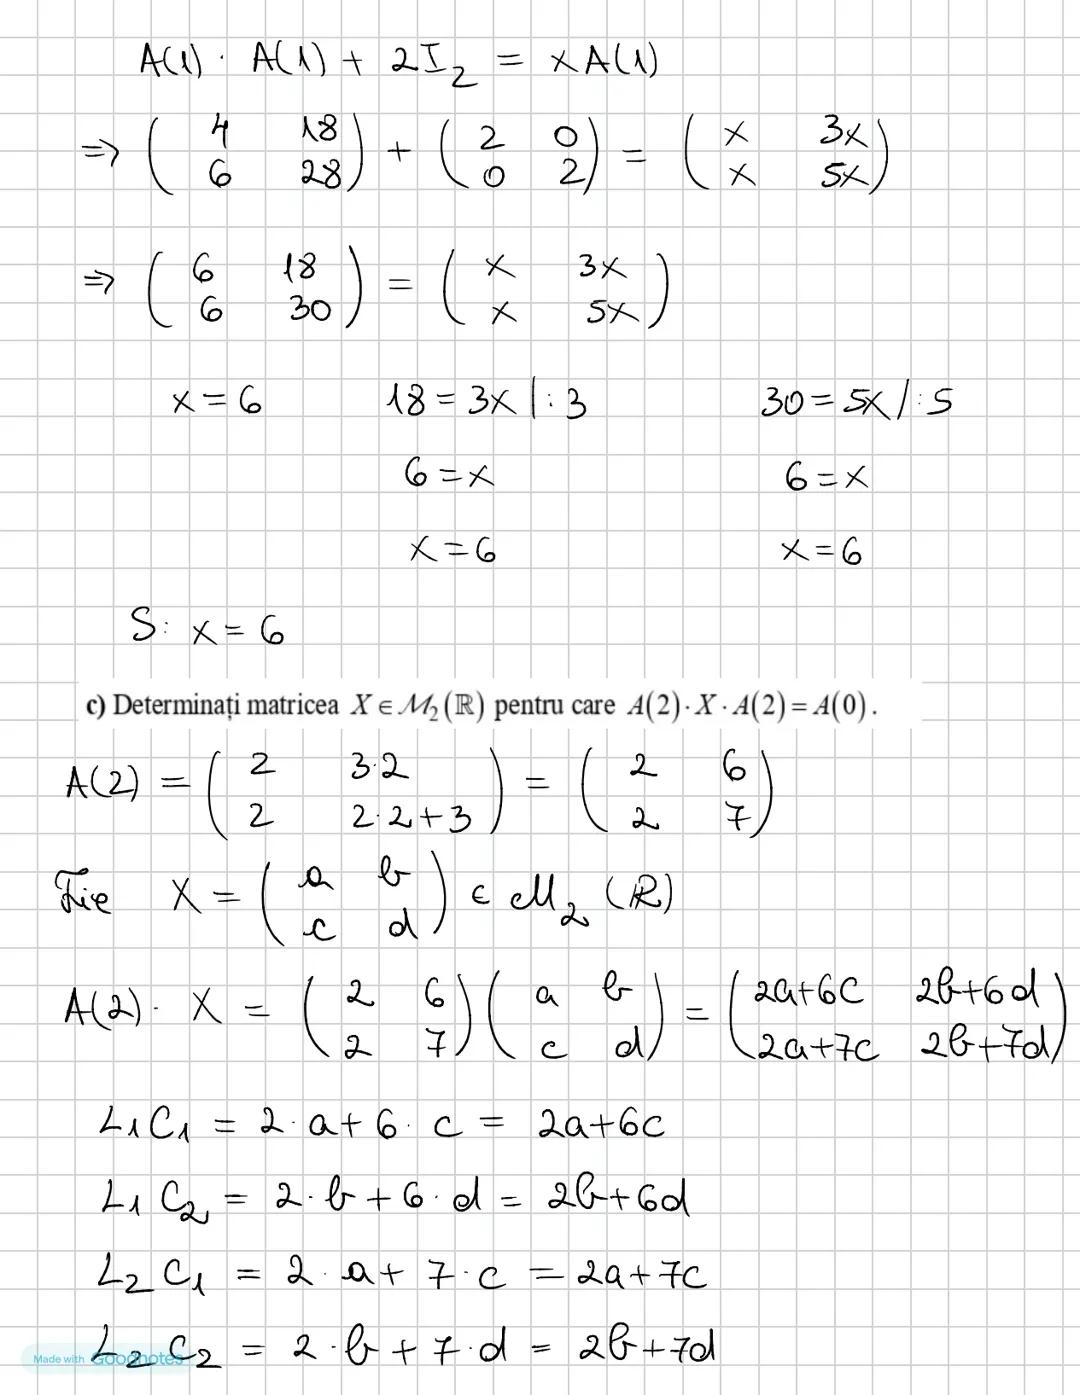 A(1) · A(1) + 2I₂ = xA(1)
=> ( 4 18 ) + ( 2 0 ) = ( x 3x )
( 6 28 ) ( 0 2 ) ( x 5x )
=> ( 6 18 ) = ( x 3x )
( 6 30 ) ( x 5x )
x = 6 18 = 3x |:3 30 = 5x |:5
6 = x 6 = x
x = 6 x = 6
S: x = 6
c) Determinați matricea X ∈ M₂(ℝ) pentru care A(2)·X·A(2) = A(0).
A(2) = ( 2 3·2 ) = ( 2 6 )
( 2 2·2+3 ) ( 2 7 )
Fie X = ( a b ) ∈ M₂ (ℝ)
( c d )
A(2) · X = ( 2 6 ) ( a b ) = ( 2a+6c 2b+6d )
( 2 7 ) ( c d ) ( 2a+7c 2b+7d )
L₁C₁ = 2·a + 6·c = 2a+6c
L₁C₂ = 2·b + 6·d = 2b+6d
L₂C₁ = 2·a + 7·c = 2a+7c
L₂C₂ = 2·b + 7·d = 2b+7d
Made with Goodnotes